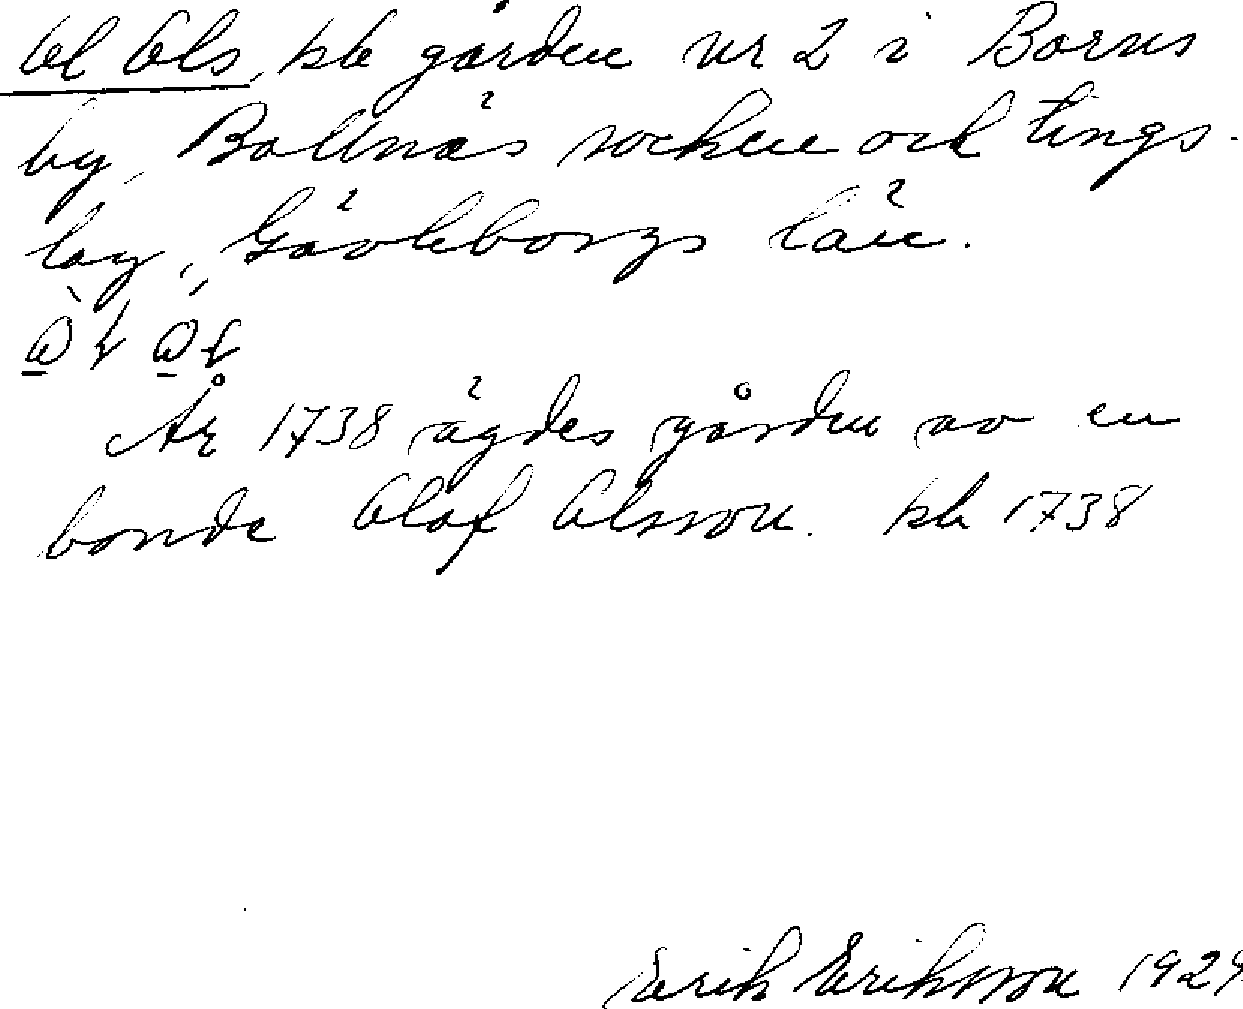 Ol Ols, på gården nr 2 i Borns
by, Bollnäs socken och tings-
lag, Gävleborgs län.
År 1738 ägdes gården av en
bonde Olof Olsson. 1738
Erik Eriksson 1929